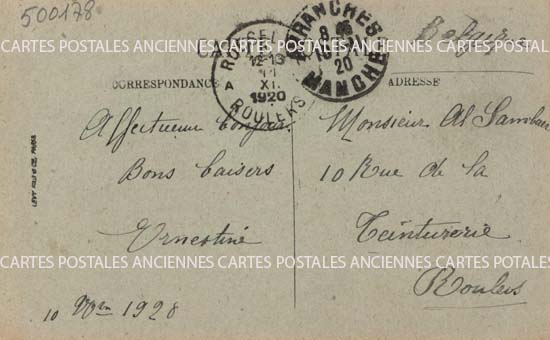 500178
Belgique
CARTES POSTALES ANCIENNES CARTES POSTALES ANCIENNES CARTES POSTALES ANCIENNES
CORRESPONDANCE
ADRESSE
A ROULERS
12-13
11
XI
1920
ROUSSELARE
AVRANCHES
20
MANCHE
Affectueux bonjour
Bons baisers
Ernestine
10 9bre 1920
Monsieur Al
10 Rue de la
Teinturerie
Roulers
CARTES POSTALES ANCIENNES CARTES POSTALES ANCIENNES CARTES POSTALES ANCIENNES
LEVY FILS & CIE. PARIS